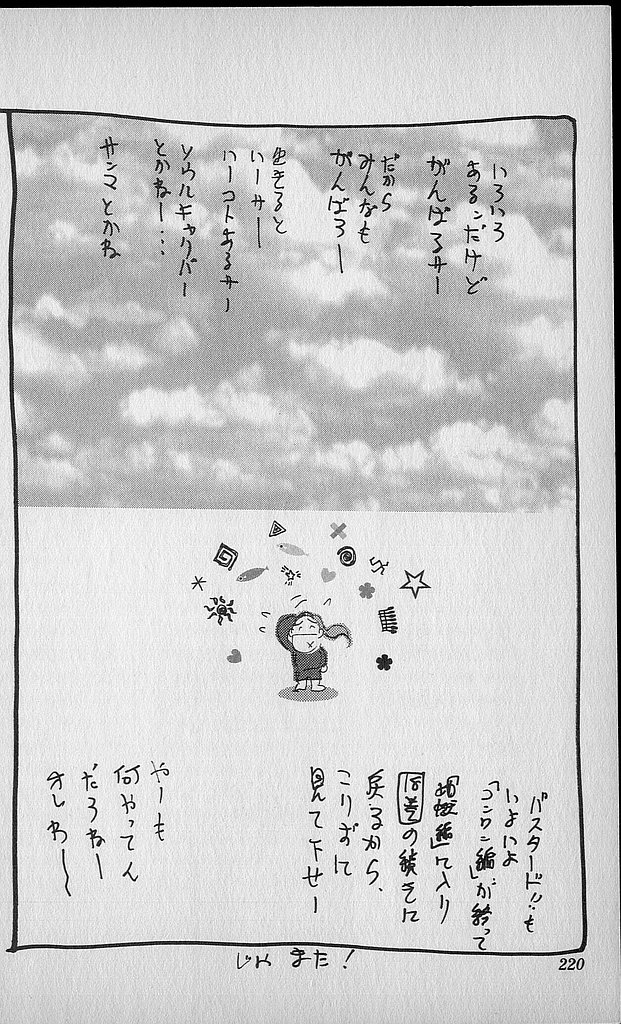 いろいろ
あるンだけど
がんばるサー
だから
みんなも
がんばろー
生きると
いーサー
いーコトあるサー
ソウルキャリバー
とかねー…
サンマとかね
バスタード!!も
いよいよ
「コンロン編」が終って
編」に入り
18巻の続きに
戻るから、
こりずに
見て下せー
やーも
何やってん
だろねー
オレわー
じゃ また!
220